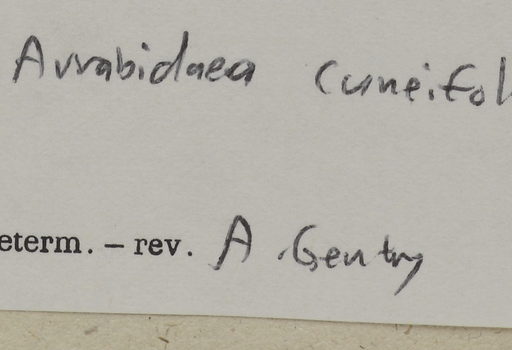 Arrabidaea cuneifol
eterm. – rev. A. Gentry